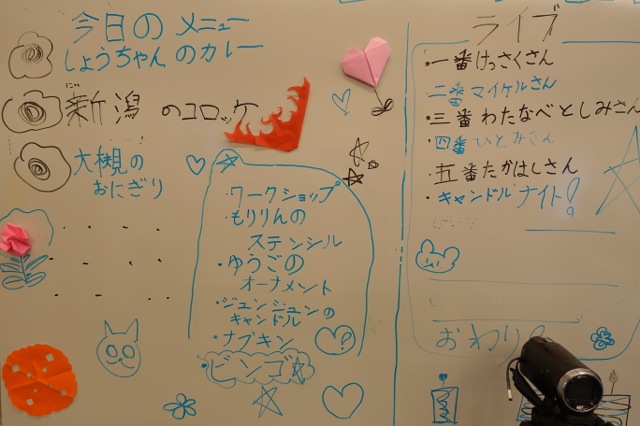 今日のメニュー
しょうちゃんのカレー
にい
新潟 のコロッケ
大槻の
おにぎり
・ワークショップ
・もりりんの
ステンシル
・ゆうごの
オーナメント
・ジュンジュンの
キャンドル
・ナプキン
・ビンゴ☆
?
ライブ
・一番けっさくさん
・二番マイケルさん
・三番わたなべとしみさん
・四番ひとみさん
・五番たかはしさん
・キャンドルナイト!
おわり